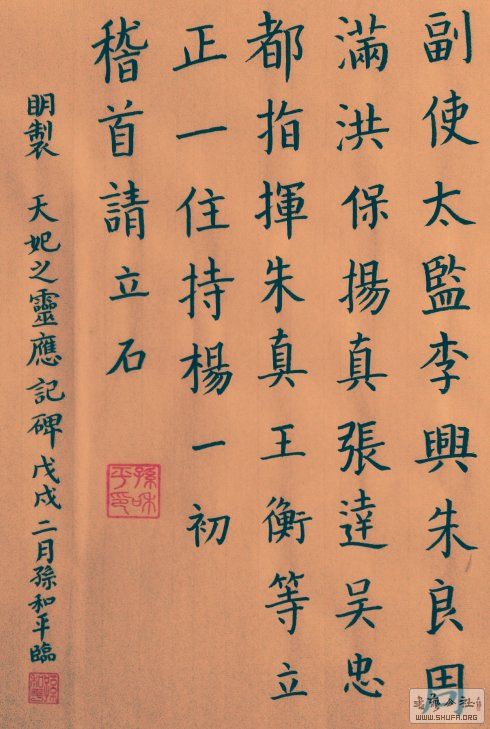 副使太監李興朱良周
滿洪保揚真張達吳忠
都指揮朱真王衡等立
正一住持楊一初
稽首請立石
明製 天妃之靈應記碑戊戌二月孫和平臨
孫和平印
WWW.SHUFA.ORG